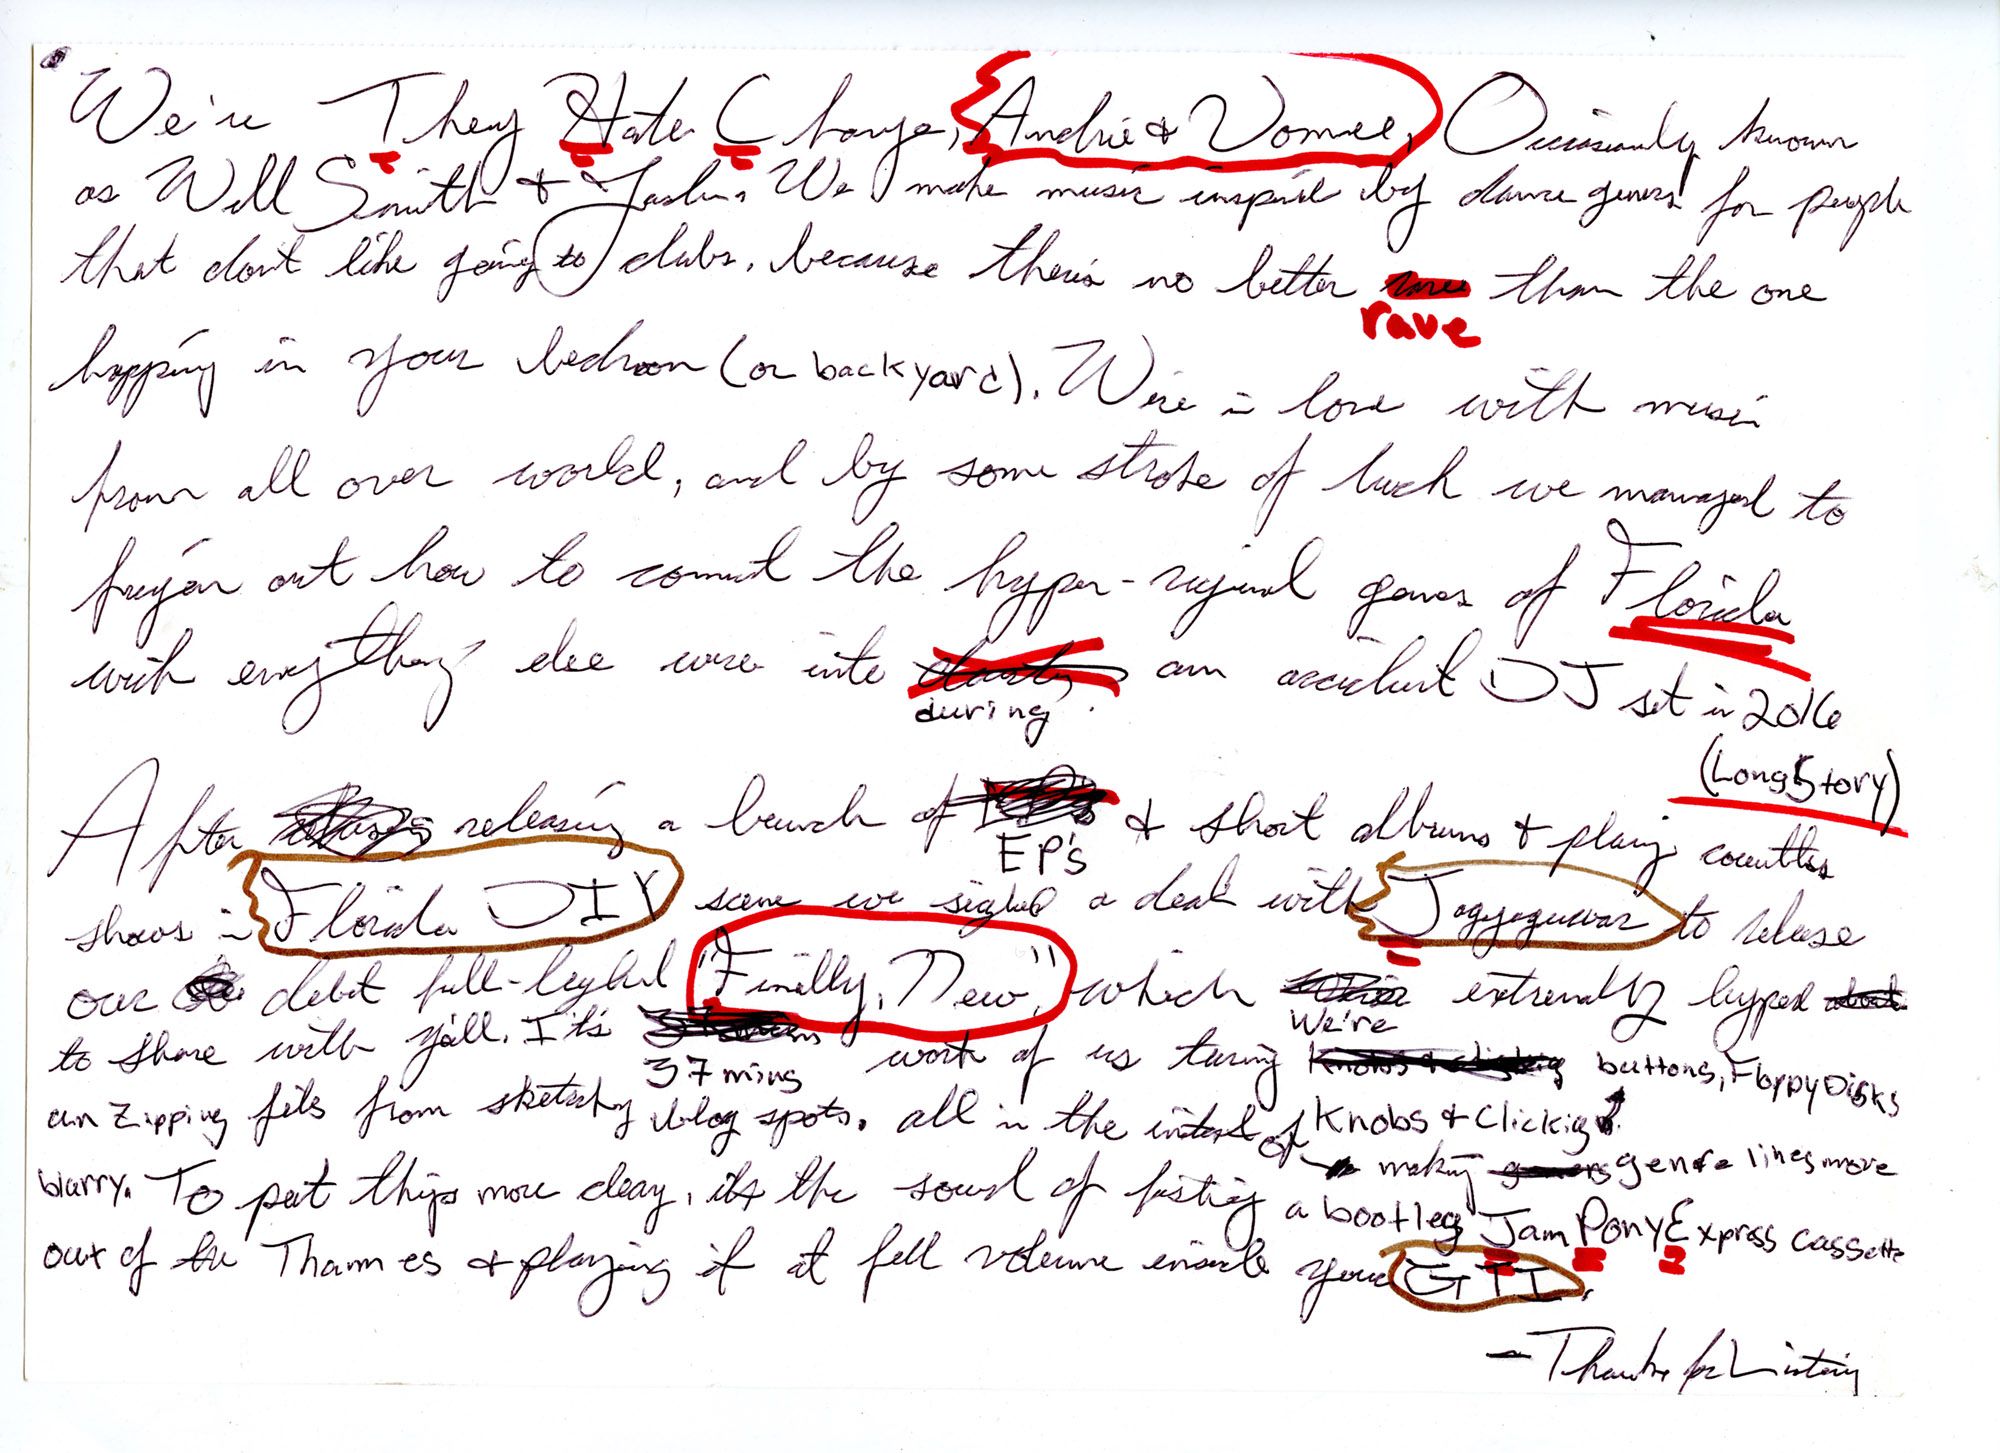 We're They Hate Change, Andre & Vonnee, Occasionally known
as Will Smith & We make music inspired by dance genres for people
that don't like going to clubs, because there's no better rave than the one
happing in your bedroom (or backyard). We're in love with music
from all over world, and by some stroke of luck we managed to
figure out how to connect the hyper-regional genres of Florida
with everything else were into during an accident DJ set in 2016
(Long Story)
After releasing a bunch of EP's & short albums & playing countless
shows in Florida DIY scene we signed a deal with Jagjaguwar to release
our debut full-length "Finally, New", which We're extremely hyped
to share with y'all. It's 37 mins worth of us turning Knobs & Clicking buttons, Floppy Disks
un Zipping files from sketchy blog spots. all in the interest of making genre lines more
blurry. To put things more clear, it's the sound of fishing a bootleg Jam Pony Express cassette
out of the Thames & playing it at full volume inside your GTI.
- Thanks for Listening